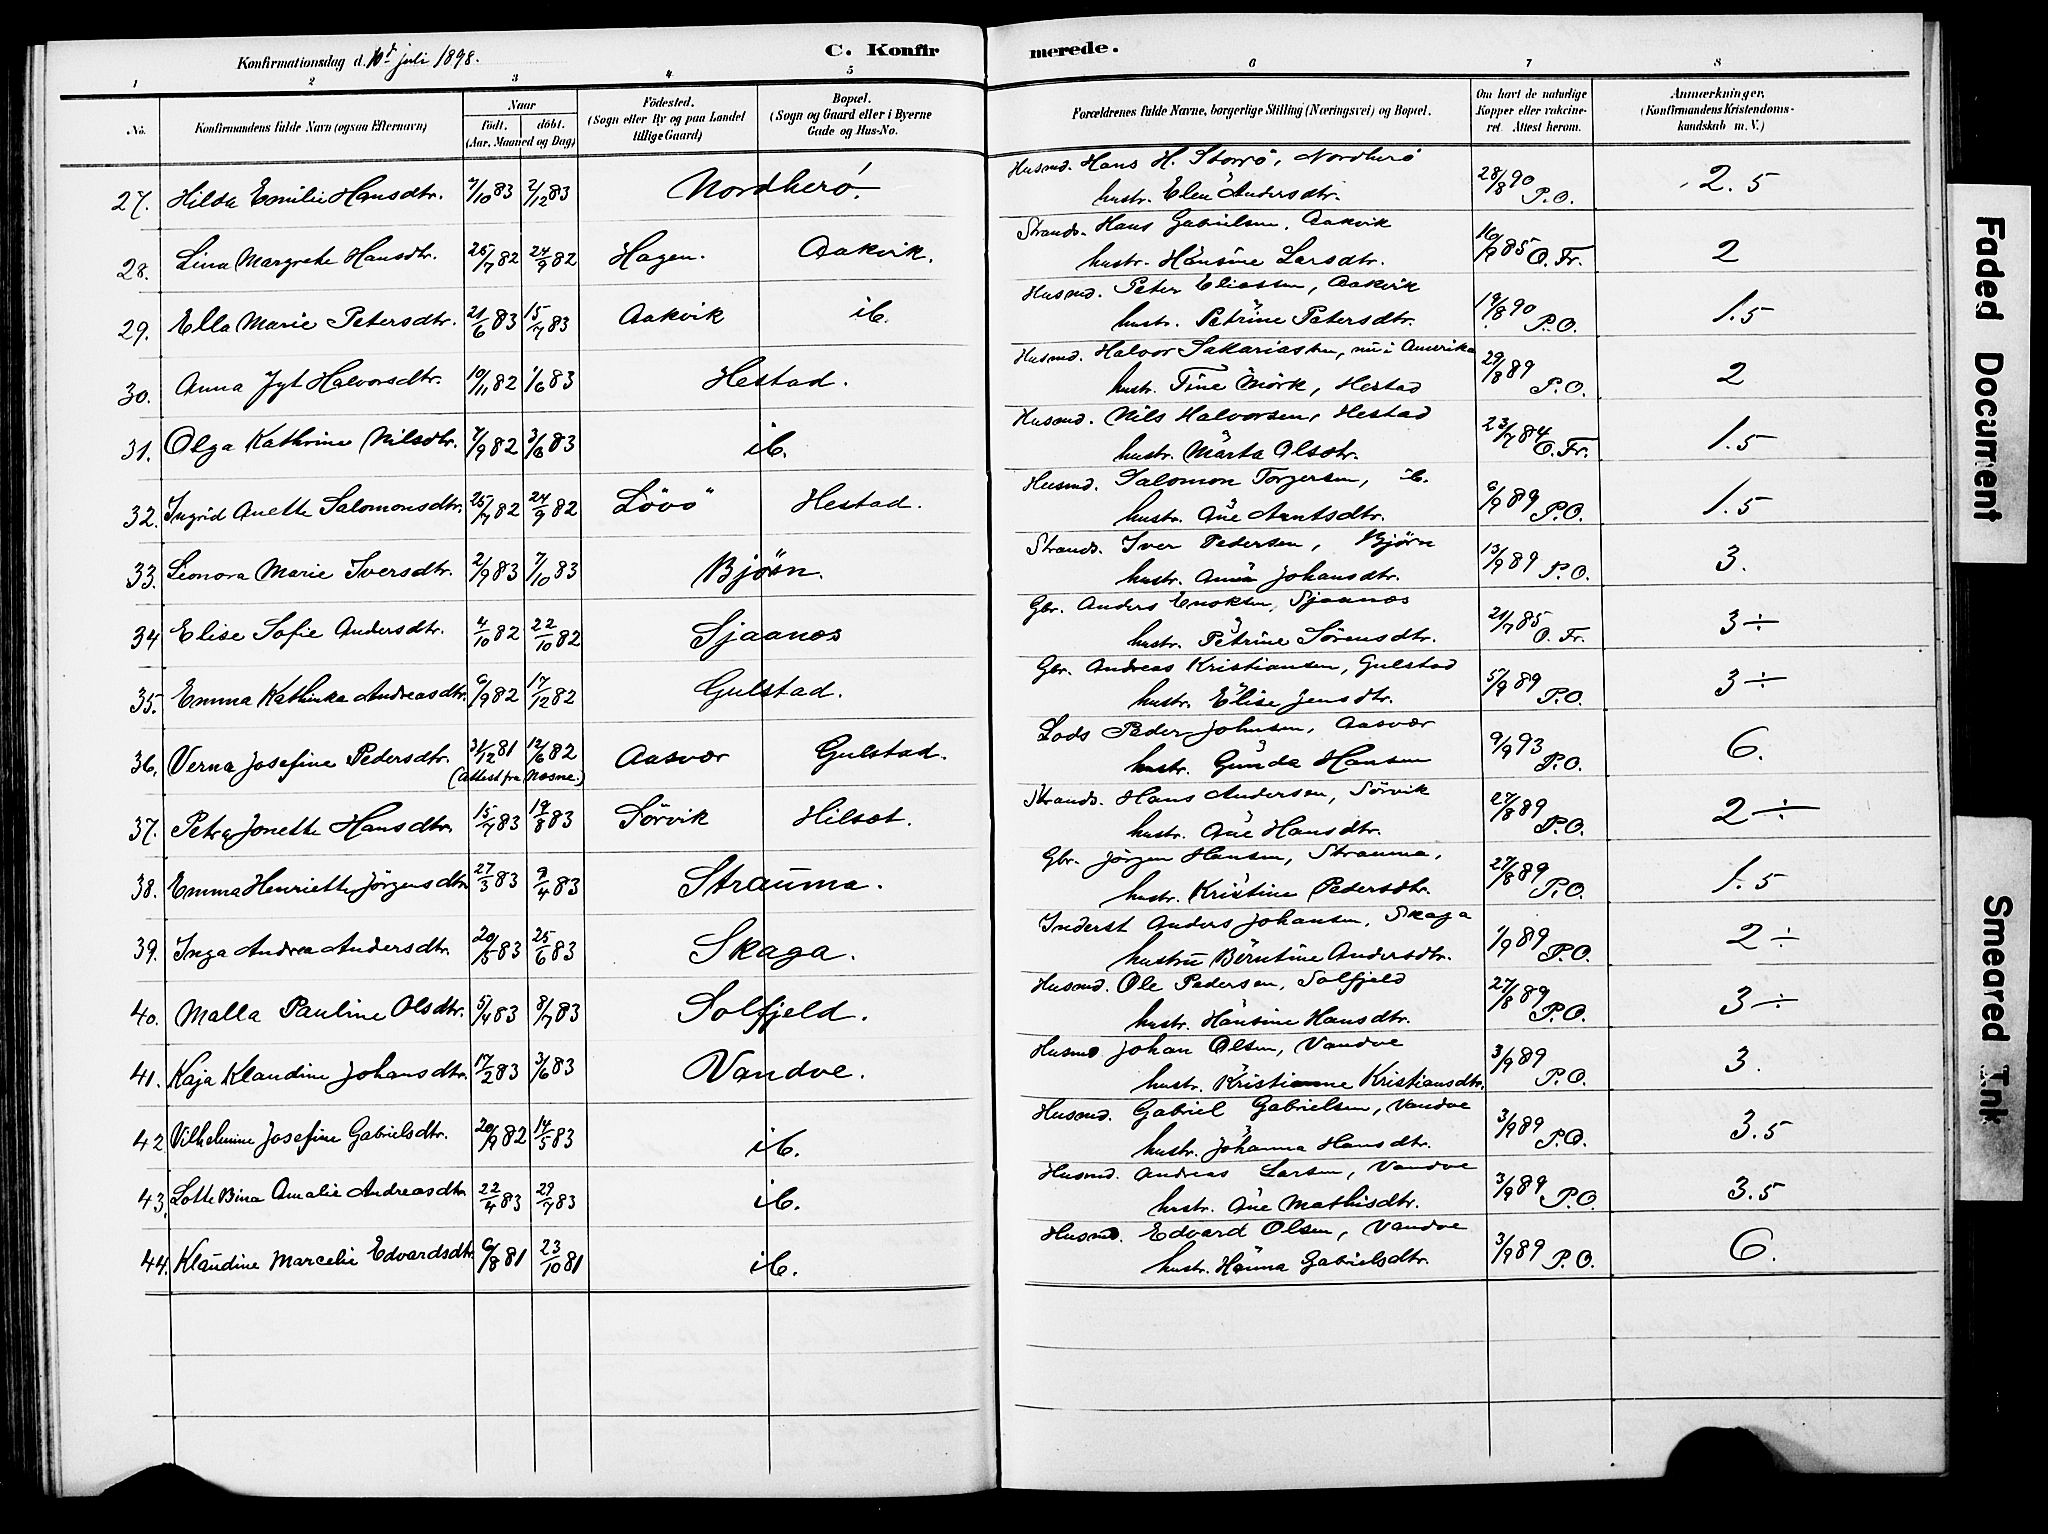 Konfirmationsdag d. 10de juli 1898.
C. Konfirmerede.
1 2 3 4 5 6 7 8
No.
Konfirmandens fulde Navn (ogsaa Efternavn)
Naar
födt. döbt.
(Aar, Maaned og Dag)
Födested.
(Sogn eller By og paa Landet
tillige Gaard)
Bopæl.
(Sogn og Gaard eller i Byerne
Gade og Hus-No.
Forældrenes fulde Navne, borgerlige Stilling (Næringsvei) og Bopæl.
Om havt de naturlige
Kopper eller vakcine-
ret Attest herom.
Anmærkninger.
(Konfirmandens Kristendoms-
kundskab m. V.)
27. Hilda Emilie Hansdtr. 7/10 83 2/12 83 Nordherö. Husmd. Hans H. Storrö, Nordherö 28/8 90 P.O. 2.5
hustr. Elen Andersdtr.
28. Lina Margrete Hansdtr. 25/7 82 24/9 82 Hagen. Aakvik. Strands. Hans Gabrielsen, Aakvik 16/9 85 O. Fr. 2
hustr. Hansine Larsdtr.
29. Ella Marie Petersdtr. 21/6 83 15/7 83 Aakvik ib. Husmd. Peter Eliassen, Aakvik 19/8 90 P.O. 1.5
hustr. Petrine Petersdtr.
30. Anna Jgt Halvorsdtr. 10/11 82 1/6 83 Hestad. Husmd. Halvor Sakariassen, nu i Amerika 29/8 89 P.O. 2
hustr. Tine Mörk, Hestad
31. Olga Kathrine Nilsdtr. 7/9 82 3/6 83 ib. Husmd. Nils Halvorsen, Hestad 23/7 84 O. Fr. 1.5
hustr. Marta Olsdtr.
32. Ingrid Anette Salomonsdtr. 25/7 82 24/9 82 Lövö Hestad. Husmd. Salomon Torgersen, ib. 6/9 89 P.O. 1.5
hustr. Ane Arntsdtr.
33. Leonora Marie Iversdtr. 2/9 83 7/10 83 Björn. Strands. Iver Pedersen, Bjørn 13/9 89 P.O. 3.
hustr. Anna Johansdtr.
34 Elise Sofie Andersdtr. 4/10 82 22/10 82 Sjaanæs Gbr. Anders Enoksen, Sjaanæs 21/7 85 O. Fr. 3 ÷
hustr. Petrine Sörensdtr.
35. Emma Kathinka Andreasdtr. 6/9 82 17/12 82 Gulstad. Gbr. Andreas Kristiansen, Gulstad 5/9 89 P.O. 3 ÷
hustr. Elise Jensdtr.
36. Verna Josefine Pedersdtr. 31/12 81 12/6 82 Aasvær Gulstad. Lods Peder Johnsen, Aasvær 9/9 93 P.O. 6.
(Attest fra Næsne.) hustr. Gunda Hansen
37. Petra Jonette Hansdtr. 15/7 83 19/8 83 Sörvik Hilsæt. Strands. Hans Andersen, Sörvik 27/8 89 P.O. 2 ÷
hustr. Ane Hansdtr.
38. Emma Henriette Jörgensdtr 27/3 83 9/4 83 Strauma. Gbr. Jörgen Hansen, Strauma, 27/8 89 P.O. 1.5
hustr. Kristine Pedersdtr.
39. Inga Andrea Andersdtr. 20/5 83 25/6 83 Skaga. Inderst Anders Johansen, Skaga 1/9 89 P.O. 2 ÷
hustru Berntine Andersdtr.
40. Malla Pauline Olsdtr. 5/4 83 8/7 83 Solfjeld. Husmd. Ole Pedersen, Solfjeld 27/8 89 P.O. 3 ÷
hustr. Hansine Hansdtr.
41. Kaja Klaudine Johansdtr. 17/2 83 3/6 83 Vandve. Husmd Johan Olsen, Vandve 3/9 89 P.O. 3.
hustr. Kristianne Kristiansdtr.
42 Vilhelmine Josefine Gabrielsdtr. 20/9 82 14/5 83 ib. Husmd. Gabriel Gabrielsen, Vandve 3/9 89 P.O. 3.5
hustr. Johanna Hansdtr.
43. Lotte Bina Amalie Andreasdtr 22/4 83 29/7 83 ib. Husmd. Andreas Larsen, Vandve 3/9 89 P.O. 3.5
hustr. Ane Mathisdtr.
44. Klaudine Marcelie Edvardsdtr. 6/8 81 23/10 81 ib. Husmd. Edvard Olsen, Vandve 3/9 89 P.O. 6.
hustr. Hanna Gabrielsdtr.
Faded Document
Smeared Ink